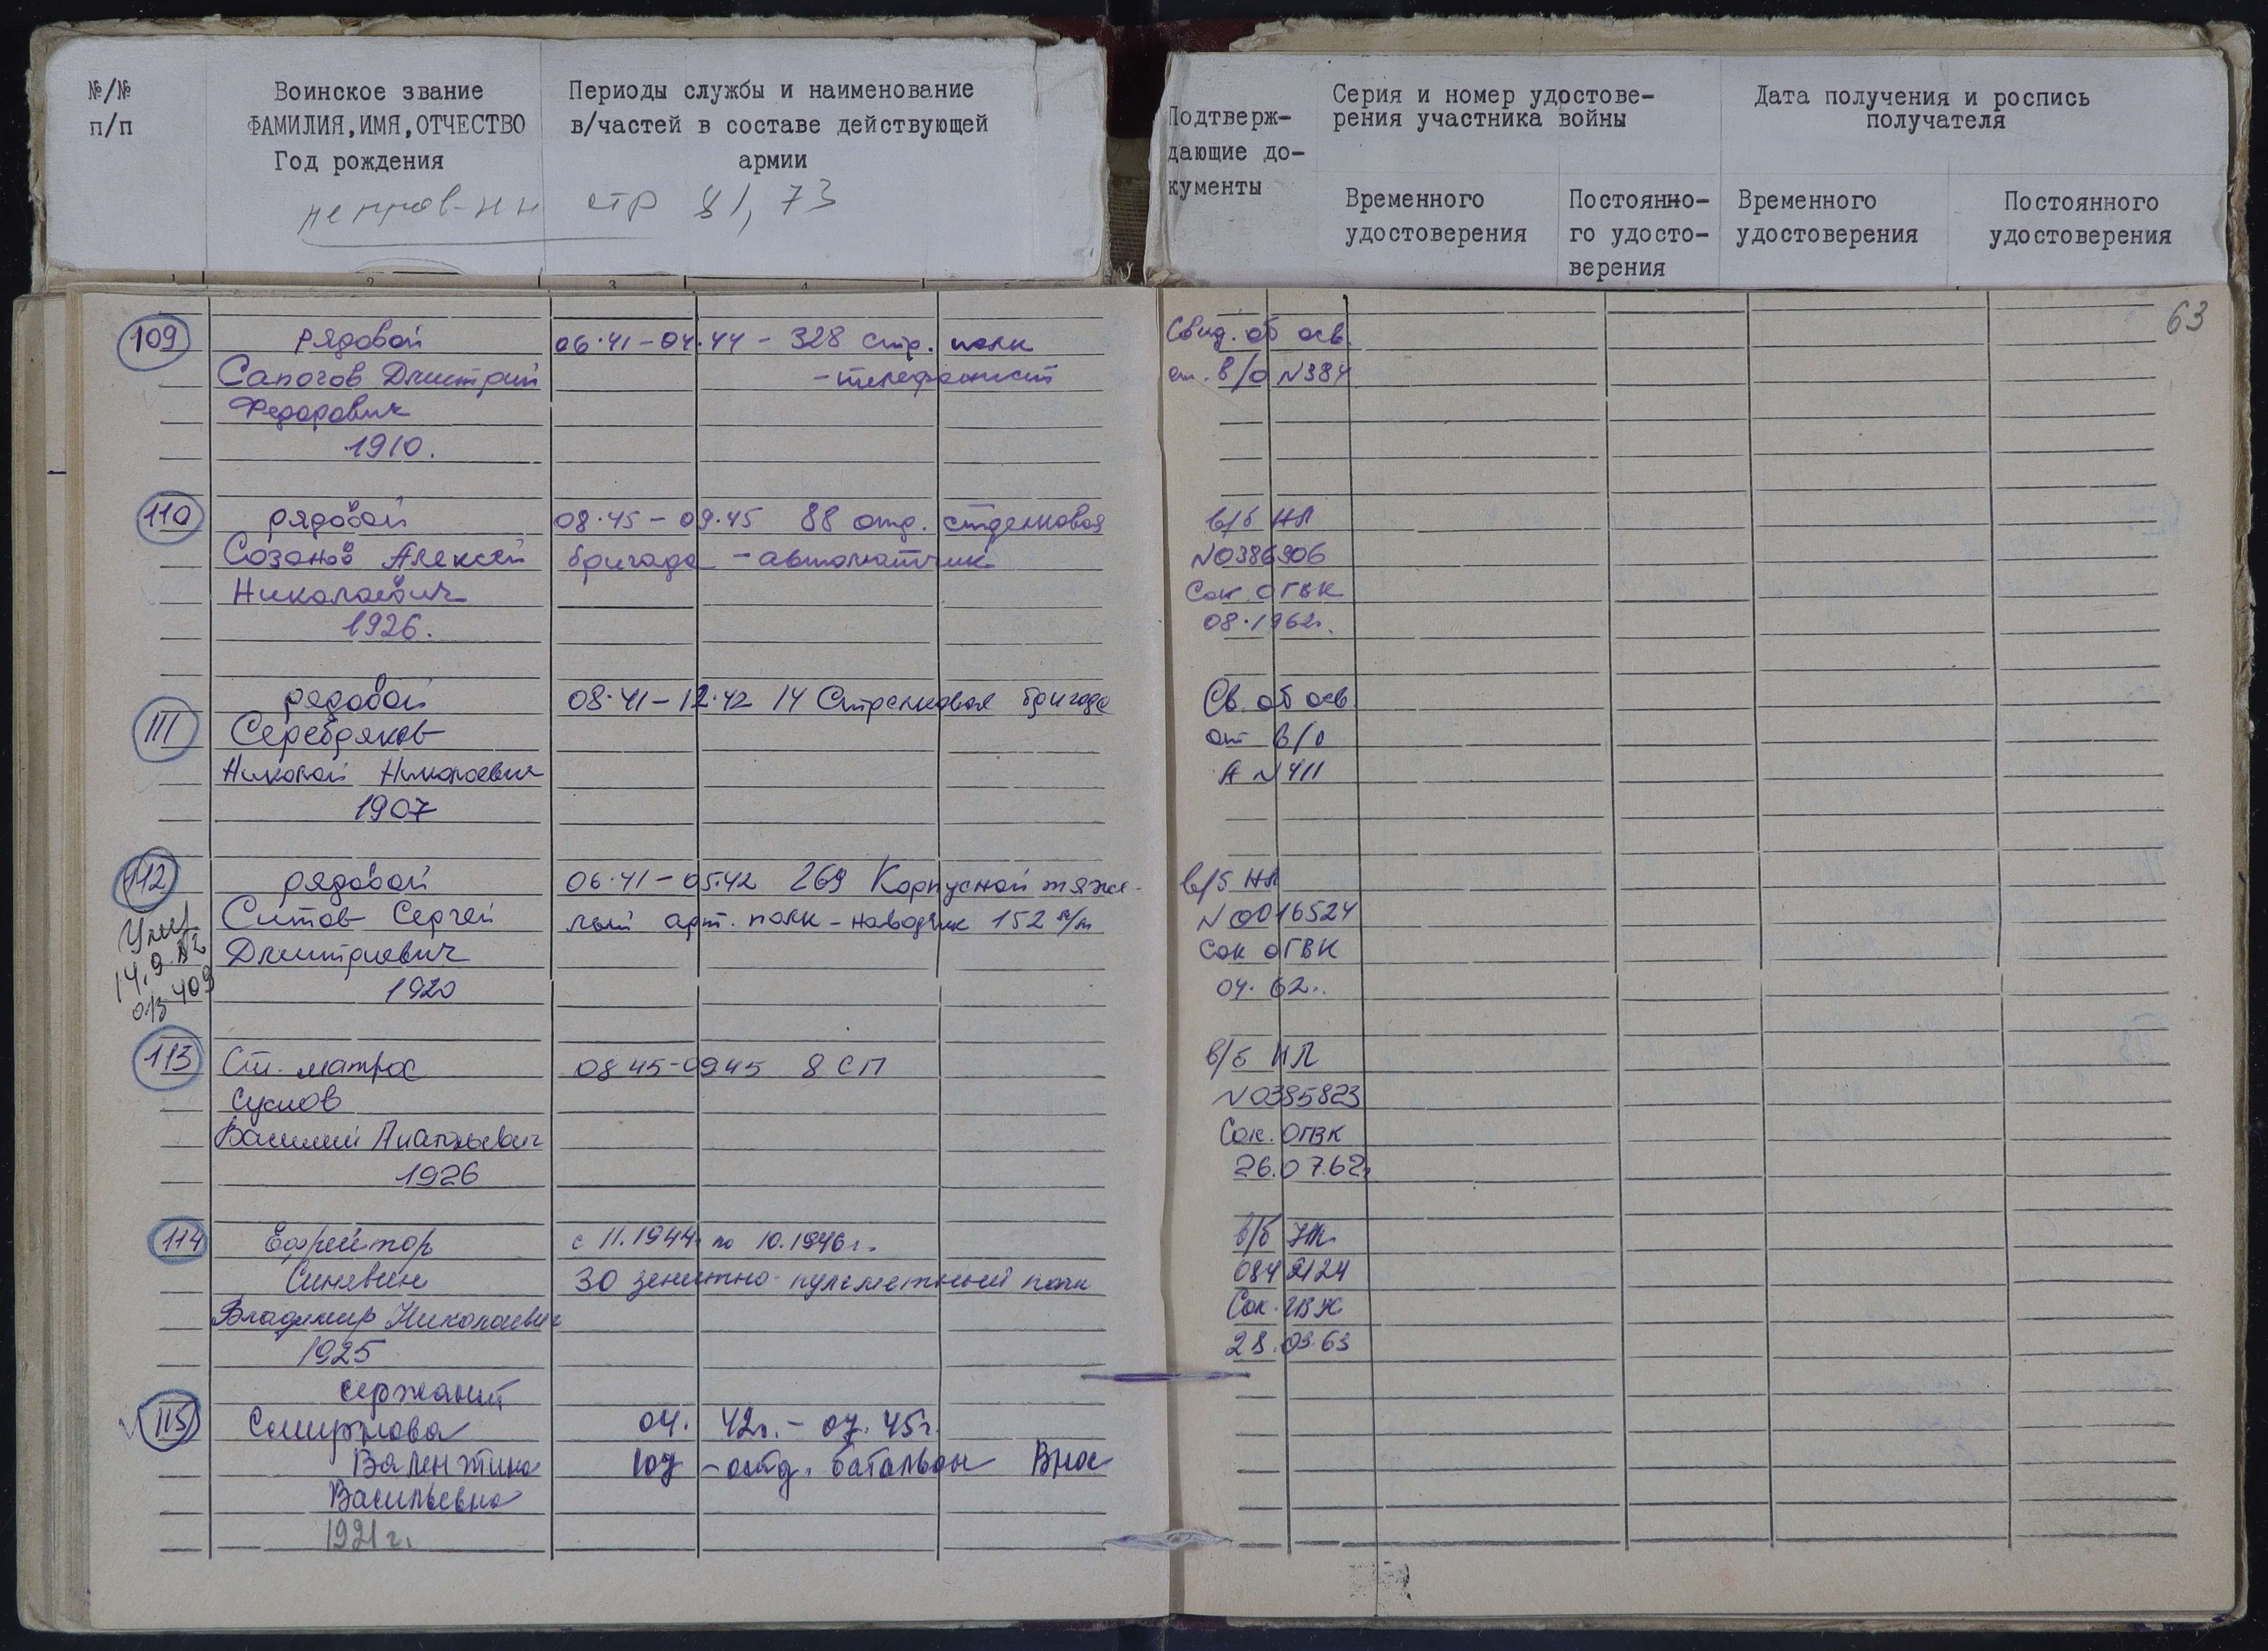 №/№
п/п
Воинское звание
ФАМИЛИЯ,ИМЯ,ОТЧЕСТВО
Год рождения
Периоды службы и наименование
в/частей в составе действующей
армии
стр 81, 73
Подтверж-
дающие до-
кументы
Серия и номер удостове-
рения участника войны
Временного
удостоверения
Постоянно-
го удосто-
верения
Дата получения и роспись
получателя
Временного
удостоверения
Постоянного
удостоверения
63
109 рядовой 06.41-04.44 - 328 стр. полк Свид. об осв.
Сапогов Дмитрий -телефонист от. в/о N384
Федорович
1910.
110 рядовой 08.45-09.45 88 отд. стрелковая в/б НЛ
Созонов Алексей бригада -автоматчик N0386906
Николаевич Сок ОГВК
1926. 08.1962г.
111 рядовой 08.41-12.42 14 Стрелковая бригада Св. об осв.
Серебряков от в/о
Николай Николаевич А N411
1907
112 рядовой 06.41-05.42 269 Корпусной тяже- в/б НЛ
Ситов Сергей лый арт. полк-наводчик 152 м/м N0016524
Дмитриевич Сок ОГВК
1920 04.62г.
Умер
14.9.82
409
113 Ст. матрос 08 45-0945 8 СП в/б НЛ
Суслов N0385823
Василий Анатольевич Сок. ОГВК
1926 26.07.62г.
114 Ефрейтор с 11.1944г по 10.1946г. в/б
Синявин 30 зенитно-пулеметный полк 0842124
Владимир Николаевич Сок. ГВК
1925 28.03.63
сержант
115 Смирнова 04. 42г.- 07. 45г.
Валентина 107 -отд. батальон Внос
Васильевна
1921г.